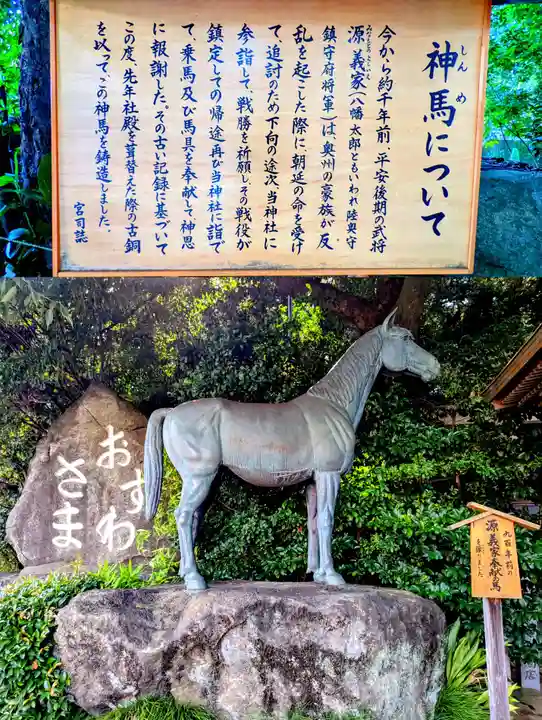 神馬について
しんめ
今から約千年前、平安後期の武将
みなもとのよしいえ
源義家(八幡太郎ともいわれ陸奥守
鎮守府将軍)は、奥州の豪族が反
乱を起こした際に、朝廷の命を受け
て、追討のため下向の途次、当神社に
参詣して、戦勝を祈願しその戦役が
鎮定しての帰途、再び当神社に詣で
て、乗馬及び馬具を奉献して、神恩
に報謝した。その古い記録に基づいて
この度、先年社殿を葺替えた際の古銅
を以って、この神馬を鋳造しました。
宮司誌
おすわ
さま
九百年前の
源義家奉献の馬
を象りました